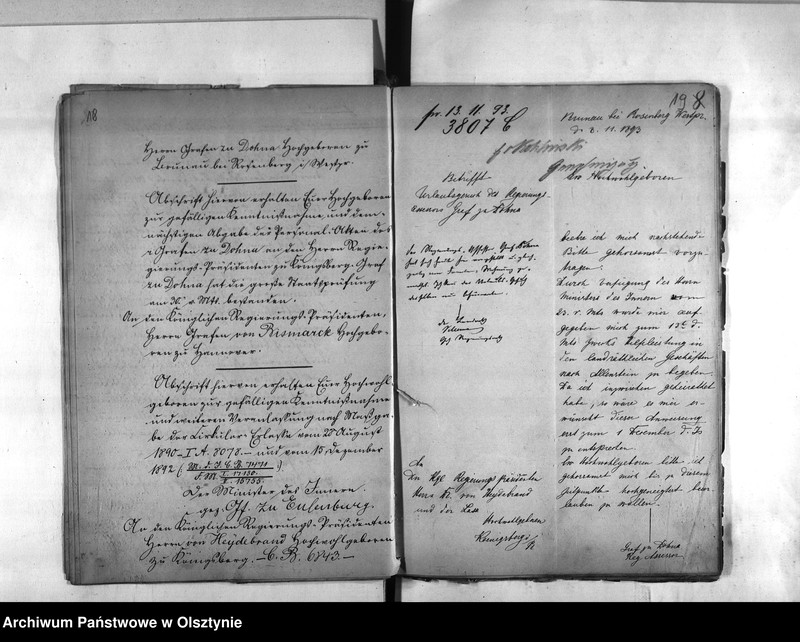 18
Herrn Grafen zu Dohna Hochgeboren zu
Brunau bei Rosenberg i/Westpr.
Abschrift hiervon erhalten Eure Hochgeboren
zur gefälligen Kenntnißnahme und dem-
nächstigen Abgabe der Personal-Akten des
Grafen zu Dohna an den Herrn Regie-
gierungs-Präsidenten zu Königsberg. Graf
zu Dohna hat die große Staatsprüfung
am 30. v. Mts. bestanden.
An den Königlichen Regierungs-Präsidenten,
Herrn Grafen von Bismarck Hochgebo-
ren zu Hannover.
Abschrift hiervon erhalten Eure Hochwohl-
geboren zur gefälligen Kenntnißnahme
und weiteren Veranlassung nach Maßga-
be der Cirkular-Erlasse vom 28 August
1890 - I.A. 8078. - und vom 15 Dezember
1892
Der Minister des Innern.
gez. Gf. zu Eulenburg.
An den Königlichen Regierungs-Präsidenten
Herrn von Heydebrand Hochwohlgeboren
zu Königsberg. - C. B. 6743. -
19 8
pr. 13. 11. 93.
3807 C
Brunau bei Rosenberg Westpr.
d. 2. 11. 1893
Betrifft
Urlaubsgesuch des Regierungs-
Assessors Graf zu Dohna
Der Landrath
An
Den Kgl. Regierungs Präsidenten
Herrn Dr. von Heydebrand
und der Lasa
Hochwohlgeboren
Koenigsberg i/Pr
Ew Hochwohlgeboren
beehre ich mich nachstehende
Bitte gehorsamst vorzu-
tragen.
Durch Verfügung des Herrn
Ministers des Innern vom
23. v. Mts wurde mir auf-
gegeben mich zum 15ten d.
Mts zwecks Hilfsleistung in
den landräthlichen Geschäften
nach Allenstein zu begeben.
Da ich inzwischen geheirathet
habe, so wäre es mir er-
wünscht dieser Anweisung
erst zum 1 Dezember d. Js
zu entsprechen.
Ew Hochwohlgeboren bitte ich
gehorsamst mich bis zu diesem
Zeitpunkte hochgeneigtest beur-
lauben zu wollen.
Graf zu Dohna
Reg. Assessor
Archiwum Państwowe w Olsztynie